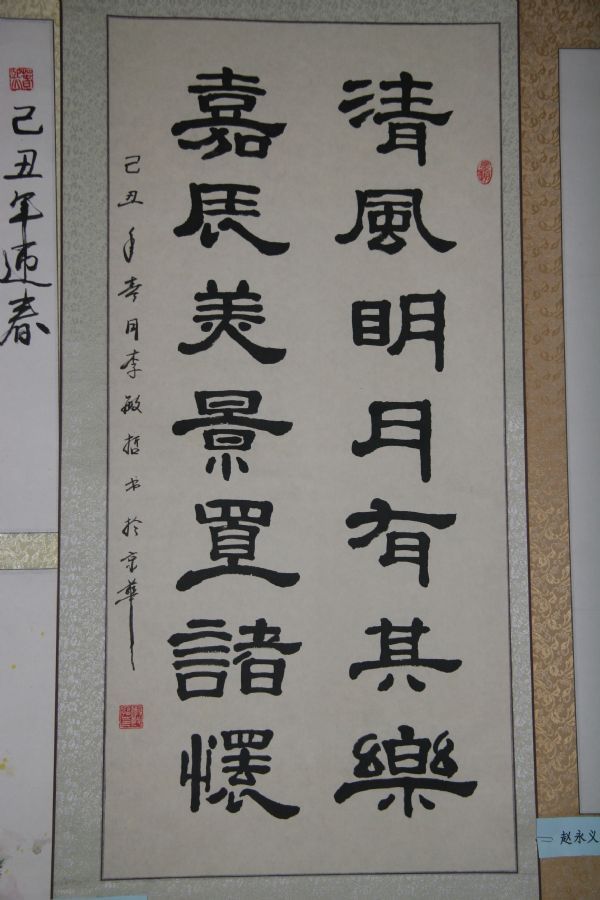 清風明月有其樂
嘉辰美景置諸懷
己丑年春月李敏哲书於京華
己丑年迎春
赵永义